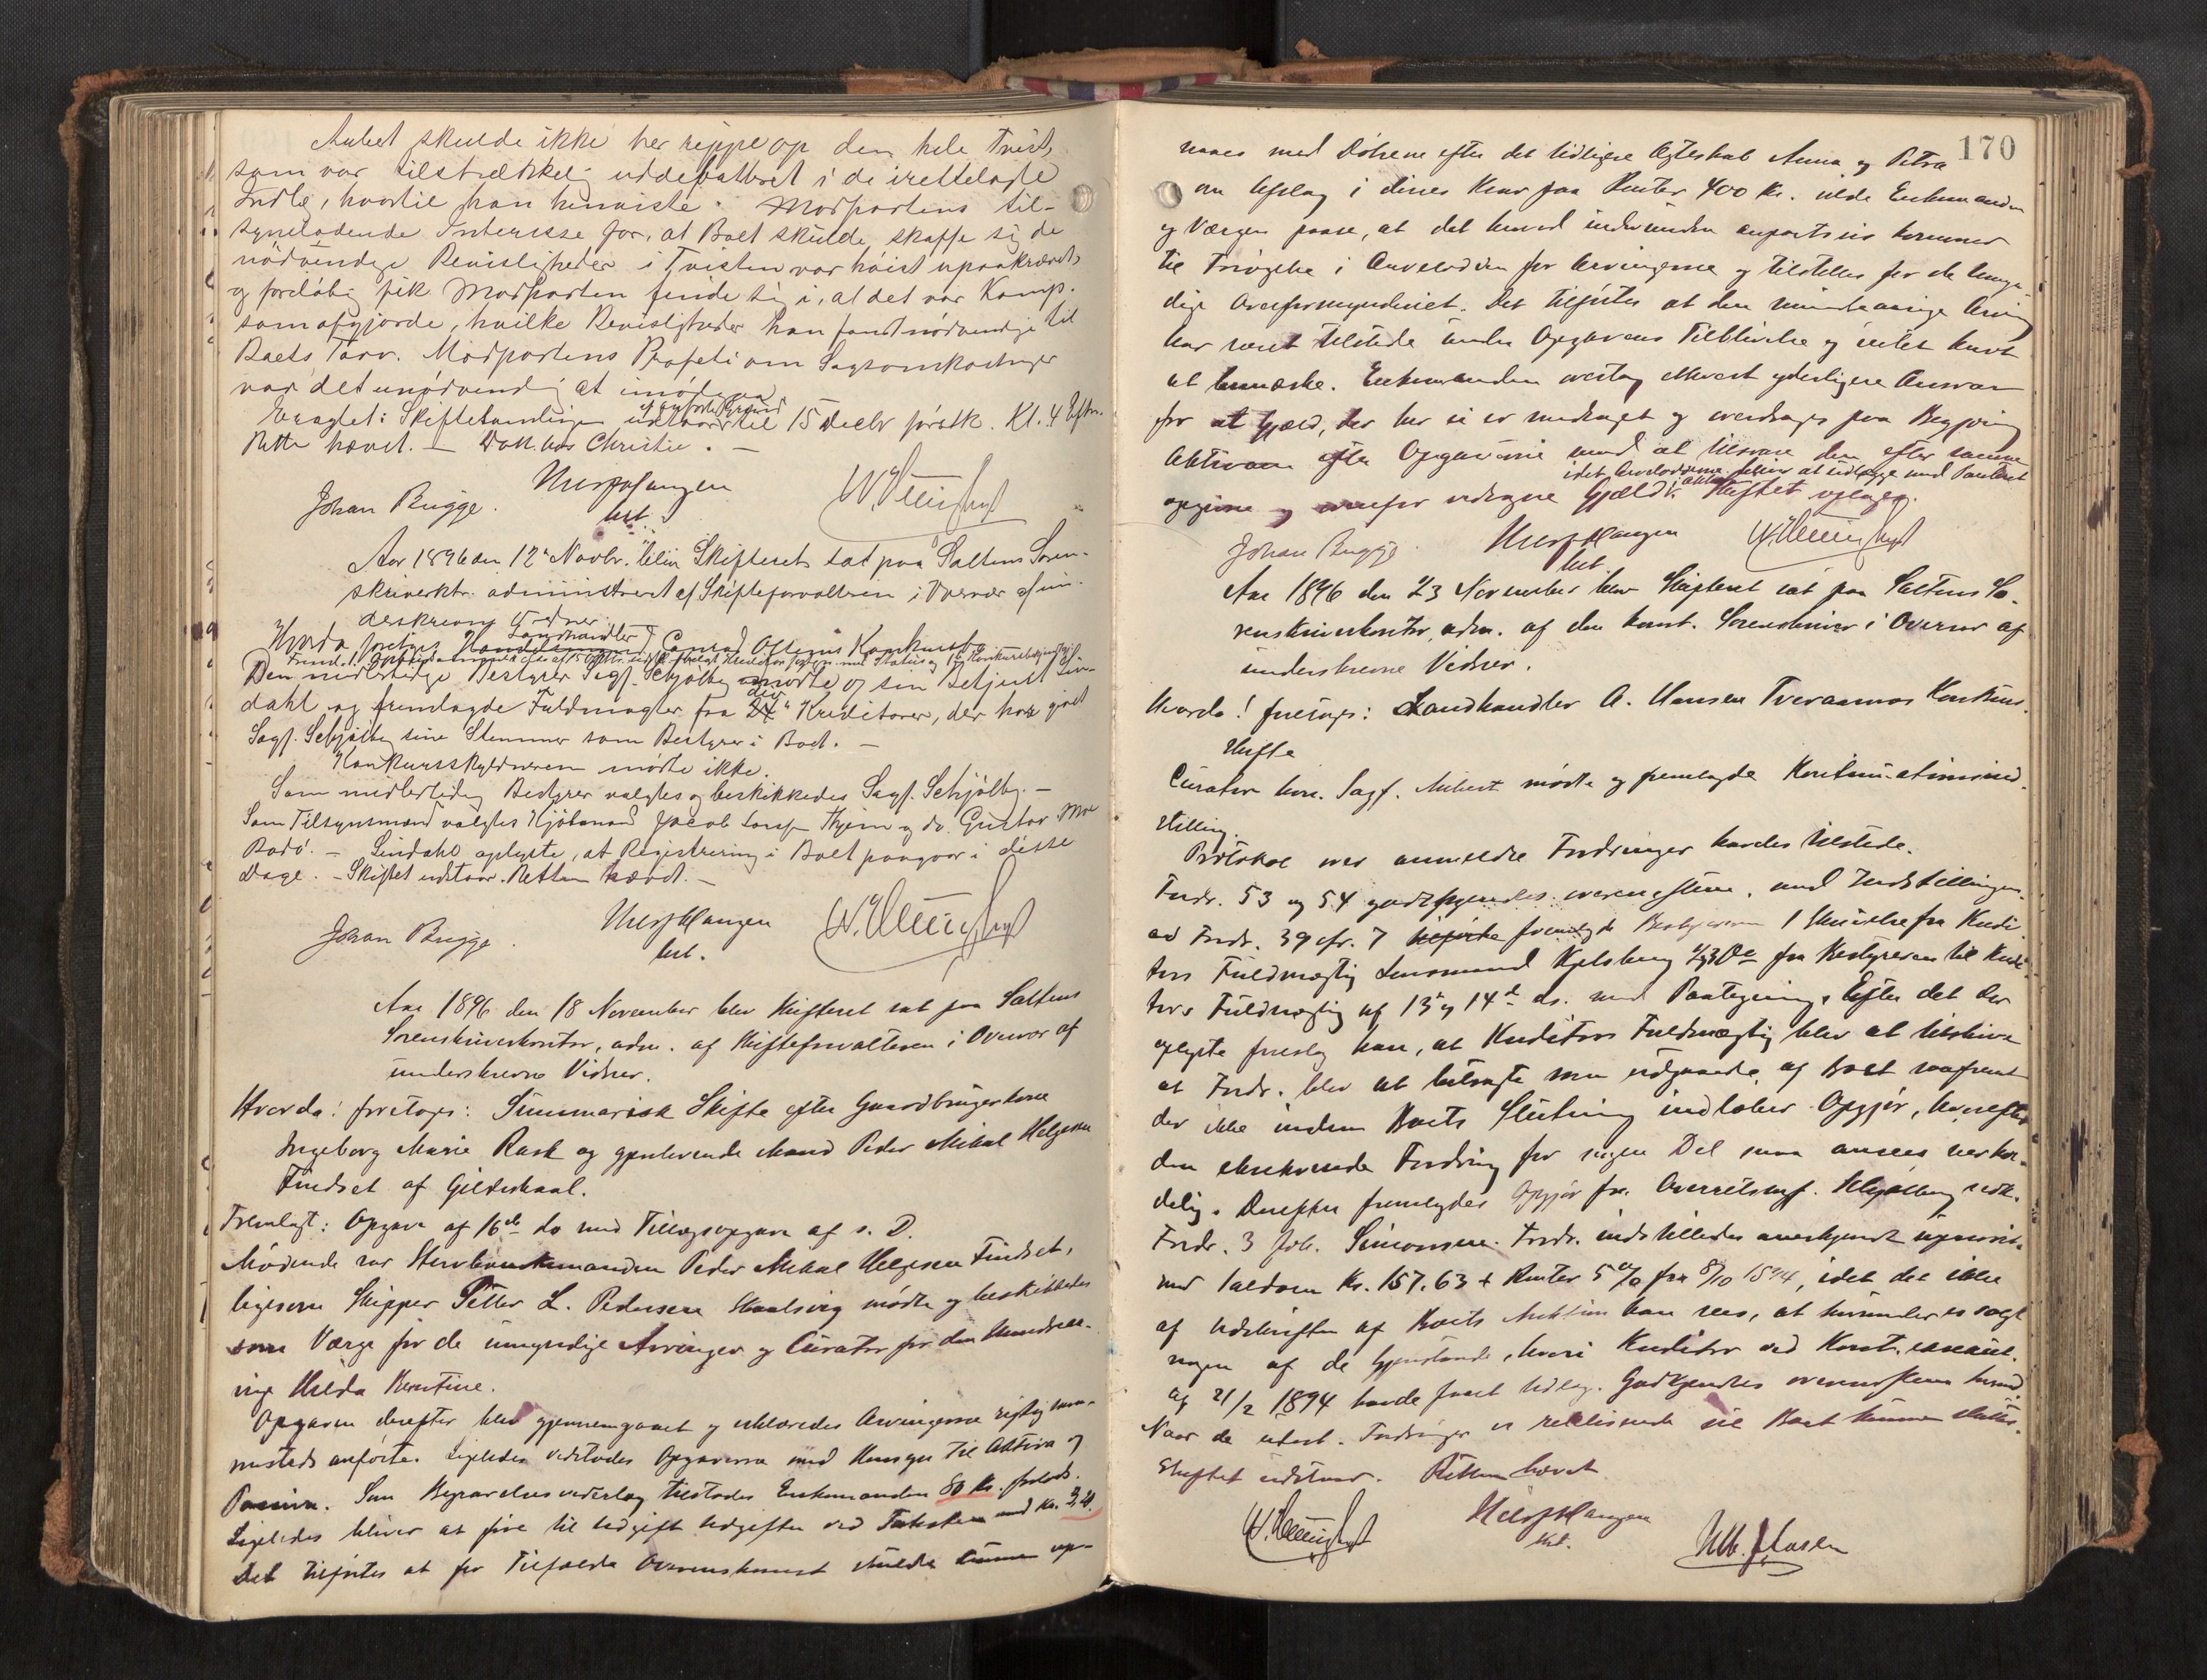 Aubert skulde ikke her rippe op den hele Tvist,
som var tilstrækkelig uddebatteret i de irettelagte
Indlæg, hvortil han henviste. Modpartens til-
syneladende Interesse for, at Boet skulde skaffe sig de
nödvendige Bevisligheder i Tvisten var höist upaakrævet,
og foreløbig fik Modparten finde sig i, at det var Komp.
som afgjorde, hvilke Bevisligheder han fandt nödvendige til
Boets Tarv. Modpartens Profeti om Sagsomkostninger
var det unödvendig at imödegaa
Eragtet: Skiftesamlingen udstaar til 15 Decbr förstk. Kl. 4 Eftm.
Retten hævet. — Dok. hos Christie. —
Johan Bugge.
W.
Aar 1896 den 12te Novbr. blev Skifteret sat paa Saltens Soren-
skriverktr. administreret af Skifteforvalteren i Overvær af un-
derskrevne Vidner.
Hvorda foretoges Landhandler Conrad Konkursbo
Den midlertidige Bestyrer Sagf. Schjölberg mødte og Betjent Lin-
dahl og fremlagde Fuldmagter fra div Kreditorer, der har givet
Sagf. Schjölberg sine Stemmer som Bestyrer i Boet. —
Konkursskyldneren mødte ikke.
Som midlertidig Bestyrer valgtes og beskikkedes Sagf. Schjölbg. —
Som Tilsynsmænd valgtes Kjöbmand Jacob Thjem og do. Gustav Moe
Bodö. — Lindahl oplyste, at Registrering i Boet paagaar i disse
Dage. — Skiftet udstaar. Retten hævet. —
Johan Bugge.
W.
Aar 1896 den 18 November blev Skifteret sat paa Saltens
Sorenskriverkontor, adm. af Skifteforvalteren i Overvær af
underskrevne Vidner.
Hvorda! foretoges: Summarisk Skifte efter Gaardbrugerkone
Ingeborg Marie Rask og gjenlevende Mand Peder Mikal Helgesen
Findset af Gildeskaal.
Fremlagt: Opgave af 16de ds med Tillægsopgave af s. D.
Mödende var Enkemanden Peder Mikal Helgesen Findset,
ligesom Skipper Petter L. Pedersen mødte og beskikkedes
som Værge for de umyndige Arvinger og Curator for den
Hilda Berntine.
Opgaven derefter blev gjennemgaaet og erklæredes Arvingerne rigtig
anförte. Ligeledes vedstodes Opgaverne med Hensyn til Aktiva og
Passiva. Som Begravelsesvederlag tilstodes Enkemanden 80 Kr.
Ligeledes bliver at före til Udgift Udgifter ved med Kr.
Det tilföies at for Tilfælde Overenskomst skulde kunne op-
170
naaes med Dötrene efter det tidligere Ægteskab Anna og Petra
om Afslag i deres Krav paa Renter 400 Kr. vilde Enkemanden
og Værgen paase, at det herved indvundne kommer
til Forögelse i Arvelodden for Arvingerne og tilstilles for de umyn-
dige Overformynderiet. Det tilföies at den mindreaarige Arving
har været tilstede under Opgavens Tilblivelse og intet havt
at bemærke. Enkemanden overtog ethvert yderligere Ansvar
for al Gjæld, der her ei er medtaget og overdrages paa Begjæring
Aktivaene efter Opgaverne mod at tilsvare den efter samme
opgivne og ovenfor vedtagne Gjæld. Skiftet
Johan Bugge.
W.
Aar 1896 den 23 November blev Skifteret sat paa Saltens So-
renskriverkontor, adm. af den konst. Sorenskriver i Overvær af
underskrevne Vidner.
Hvorda! foretoges: Landhandler A. Hansen Tveraamos Konkurs-
skifte
Curator Sagf. Aubert mödte og fremlagde
stilling.
Protokol over anmeldte Fordringer havdes tilstede.
Fordr. 53 og 54 godkjendtes overensstem. med Indstillingen
ad Fordr. 39 cfr. 7 fremlagde Bestyreren 1 Skrivelse fra Kredi-
tors Fuldmægtig Lensmand fra Bestyreren til Kredi-
tors Fuldmægtig af 13de og 14de ds. med Paategning. Efter det der
oplyste foreslog han, at Kreditors Fuldmægtig blev at tilskrive
at Fordr. blev at betragte som udgaaende af Boet saafremt
der ikke inden Boets Slutning indlöber Opgjör, hvorefter
den Fordring for nogen Del maa ansees
Derefter fremlagdes Opgjör fra Overretssagf. Schjölberg vedk.
Fordr. 3 Joh. Simonsen. Fordr. indstilledes anerkjendt
med Saldoen Kr. 157.63 + Renter 5 % fra 8/10 1894, idet det ikke
af Udskriften af Boets Auktion kan sees, at herunder er solgt
nogen af de Gjenstande, hvori Kreditor ved
af 21/2 1894 havde faaet Udlæg. Godkjendtes overensstem. hermed
Naar de udest. Fordringer er realiserede vil Boet kunne sluttes.
Skiftet udstaar. Retten hævet.
W.